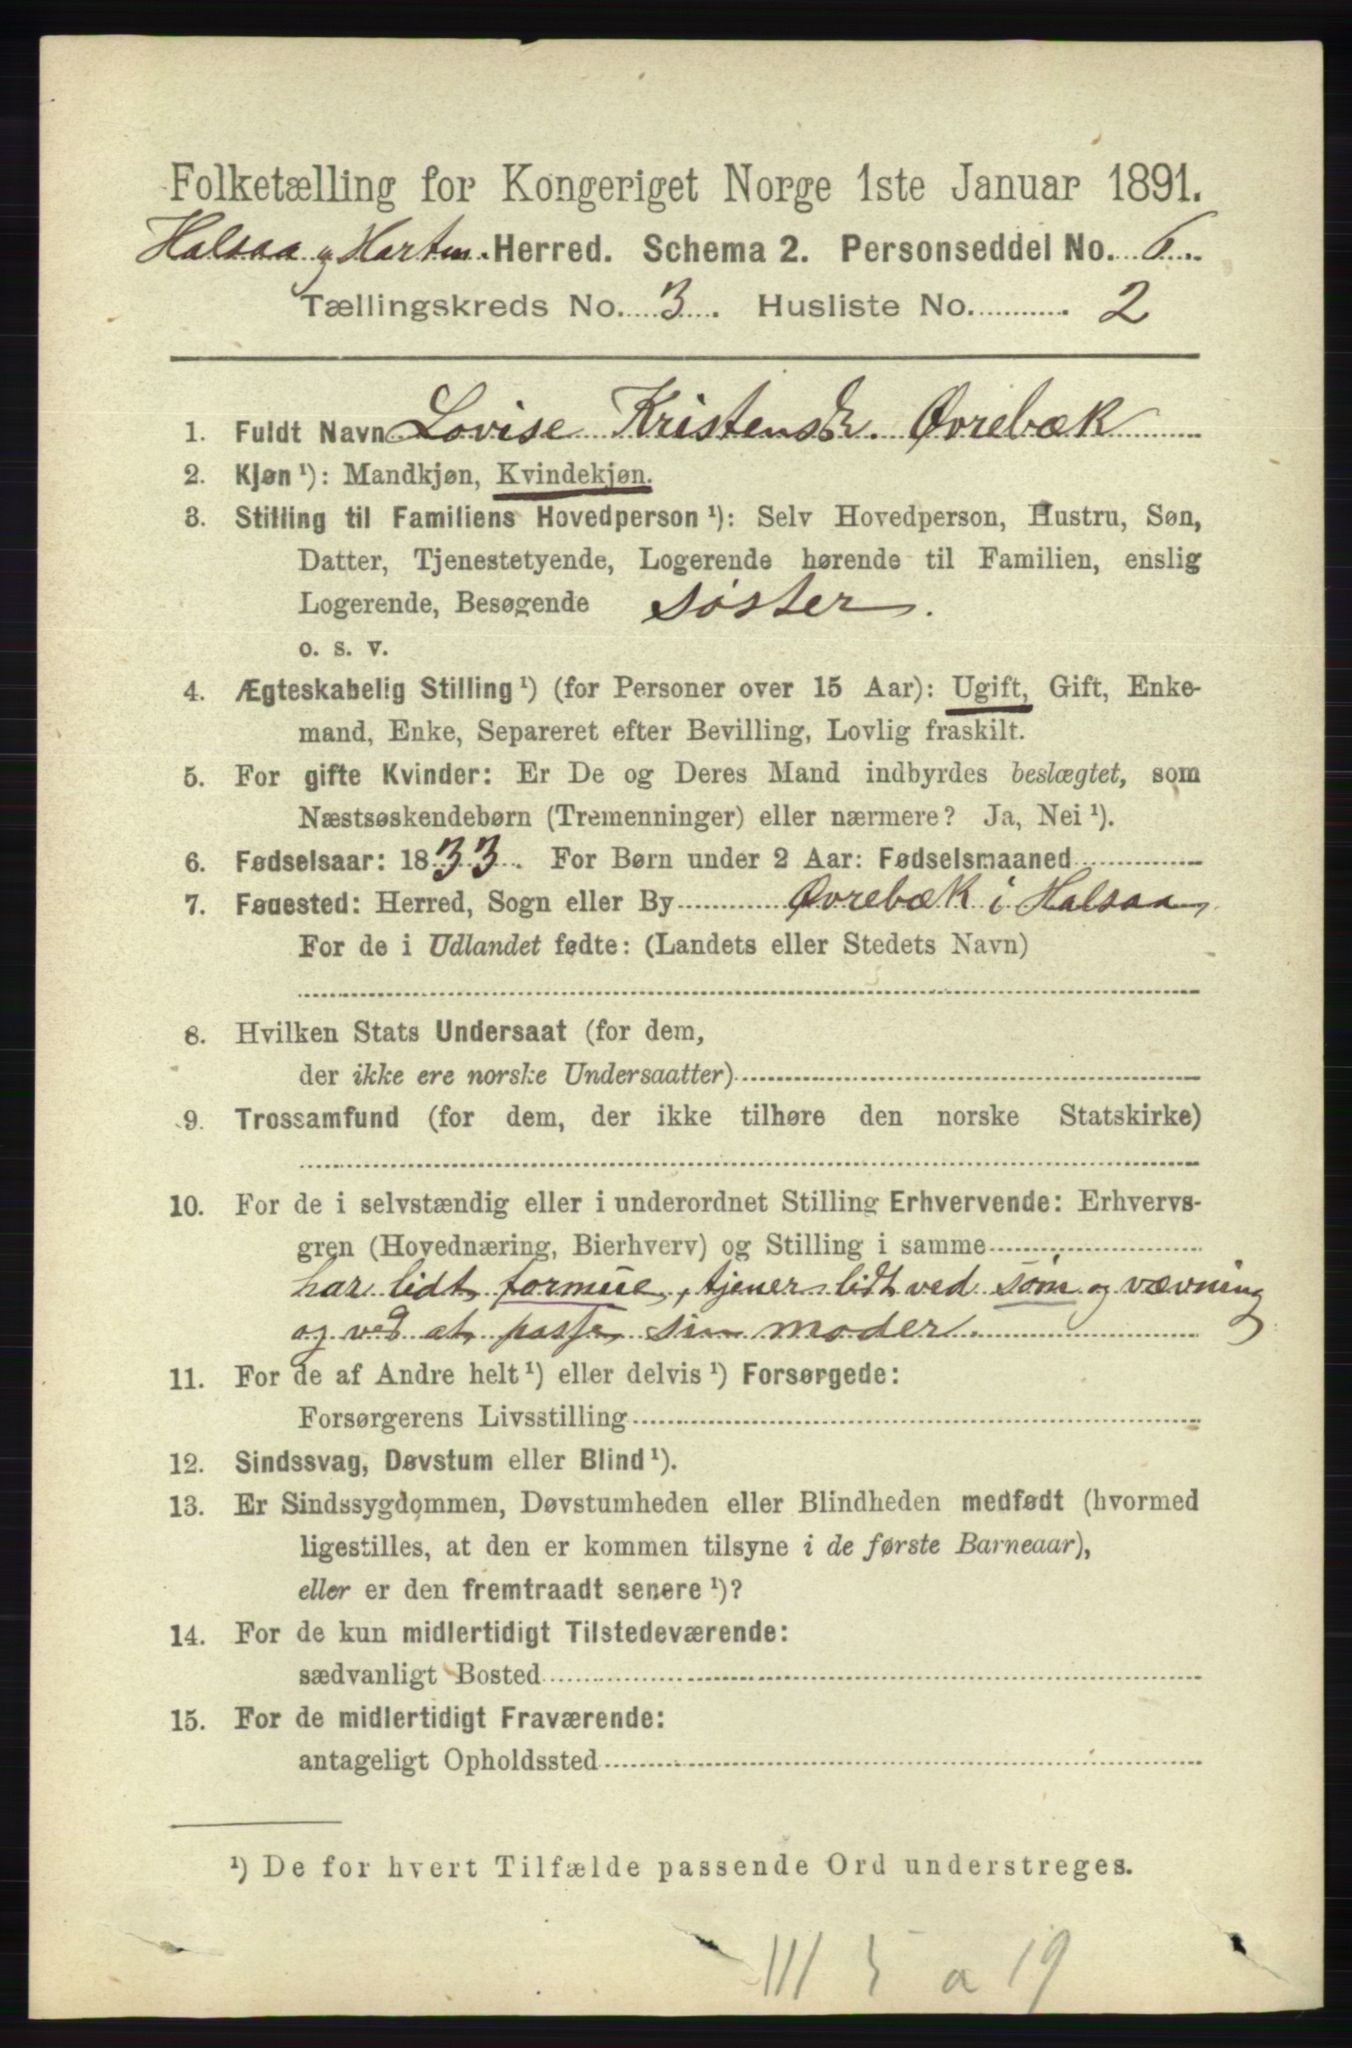 Folketælling for Kongeriget Norge 1ste Januar 1891.
Halsaa og Hartm. Herred. Schema 2. Personseddel No. 6.
Tællingskreds No. 3. Husliste No. 2
1. Fuldt Navn Lovise Kristensdr. Øvrebæk
2. Kjøn ¹): Mandkjøn, Kvindekjøn.
3. Stilling til Familiens Hovedperson ¹): Selv Hovedperson, Hustru, Søn,
Datter, Tjenestetyende, Logerende hørende til Familien, enslig
Logerende, Besøgende søster.
o. s. v.
4. Ægteskabelig Stilling ¹) (for Personer over 15 Aar): Ugift, Gift, Enke-
mand, Enke, Separeret efter Bevilling, Lovlig fraskilt.
5. For gifte Kvinder: Er De og Deres Mand indbyrdes beslægtet, som
Næstsøskendebørn (Tremenninger) eller nærmere? Ja, Nei ¹).
6. Fødselsaar: 1833. For Børn under 2 Aar: Fødselsmaaned
7. Fødested: Herred, Sogn eller By Øvrebæk i Halsaa
For de i Udlandet fødte: (Landets eller Stedets Navn)
8. Hvilken Stats Undersaat (for dem,
der ikke ere norske Undersaatter)
9. Trossamfund (for dem, der ikke tilhøre den norske Statskirke)
10. For de i selvstændig eller i underordnet Stilling Erhvervende: Erhvervs-
gren (Hovednæring, Bierhverv) og Stilling i samme
har lidt formue, tjener lidt ved søm og vævning
og ved at passe sin moder.
11. For de af Andre helt ¹) eller delvis ¹) Forsørgede:
Forsørgerens Livsstilling
12. Sindssvag, Døvstum eller Blind ¹).
13. Er Sindssygdommen, Døvstumheden eller Blindheden medfødt (hvormed
ligestilles, at den er kommen tilsyne i de første Barneaar),
eller er den fremtraadt senere ¹)?
14. For de kun midlertidigt Tilstedeværende:
sædvanligt Bosted
15. For de midlertidigt Fraværende:
antageligt Opholdssted
¹) De for hvert Tilfælde passende Ord understreges.
III 5 a 19